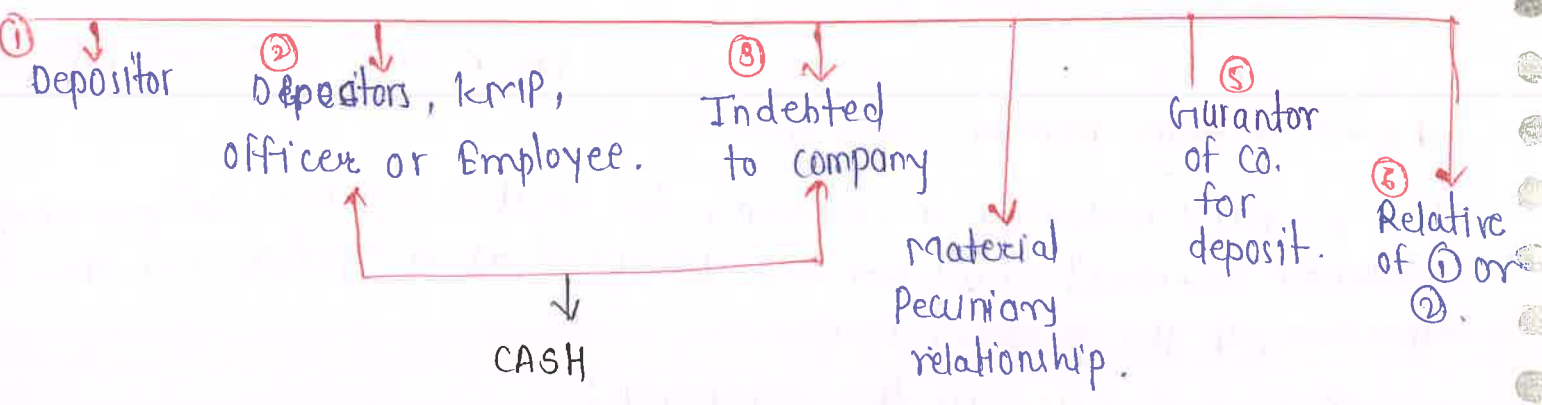 ①
Depositor
②
Depositors, KMP,
officer or Employee.
③
Indebted
to company
Material
Pecuniary
relationship.
⑤
Gurantor
of co.
for
deposit.
⑥
Relative
of ① or
②.
CASH